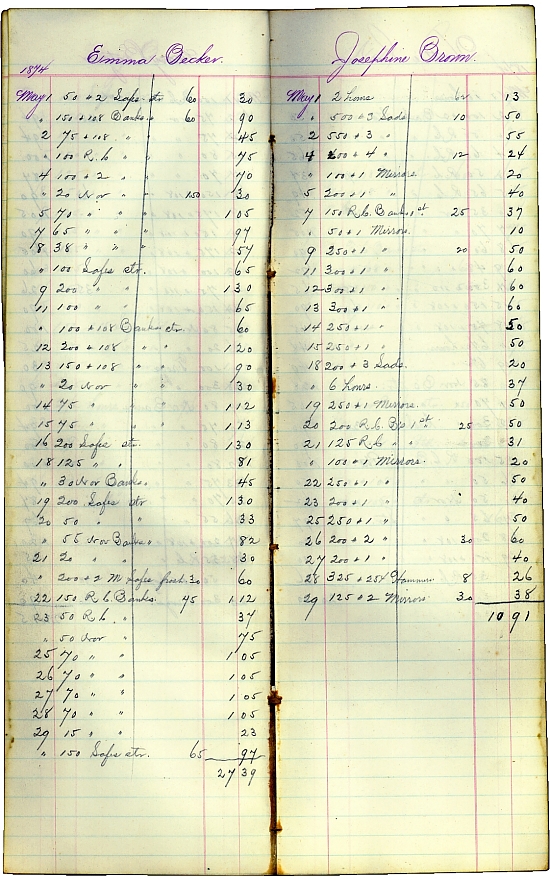 1874
Emma Becker.
May 1 50 #2 Safes str 60 30
" 150 #108 Banks " 60 90
2 75 #108 " " 45
" 100 R.G. " " 75
4 100 #2 " " 70
" 20 Nov " " 150 30
5 70 " " " 1 05
7 65 " " " 97
8 38 " " " 57
" 100 Safes str. 65
9 200 " " 1 30
11 100 " " 65
" 100 #108 Banks str 60
12 200 #108 " " 1 20
13 150 #108 " " 90
" 20 Nov " " 30
14 75 " " " 1 12
15 75 " " " 1 13
16 200 Safes str. 1 30
18 125 " " 81
" 30 Nov Banks " 45
19 200 Safes str 1 30
20 50 " " 33
" 55 Nov Banks " 82
21 20 " " 30
" 200 #2 M Safes 30 60
22 150 R G Banks. 45 1 12
23 50 R G " 37
" 50 Nov " 75
25 70 " " 1 05
26 70 " " 1 05
27 70 " " 1 05
28 70 " " 1 05
29 15 " " 23
" 150 Safes str. 65 97
27 39
Josephine Brown.
May 1 2 hours 13
" 500 #3 Sads. 10 50
2 550 #3 " 55
4 200 #4 " 12 24
" 100 #1 Mirrors. 20
5 200 #1 " 40
7 150 R.G. Banks 1st 25 37
" 50 #1 Mirrors. 10
9 250 #1 " 20 50
11 300 #1 " 60
12 300 #1 " 60
13 300 #1 " 60
14 250 #1 " 50
15 250 #1 " 50
18 200 #3 Sads. 20
" 6 hours. 37
19 250 #1 Mirrors. 50
20 200 R.G. 1st 25 50
21 125 R G " " 31
" 100 #1 Mirrors. 20
22 250 #1 " 50
23 200 #1 " 40
25 250 #1 " 50
26 200 #2 " 30 60
27 200 #1 " 40
28 325 #254 Hammers 8 26
29 125 #2 Mirrors. 30 38
10 91